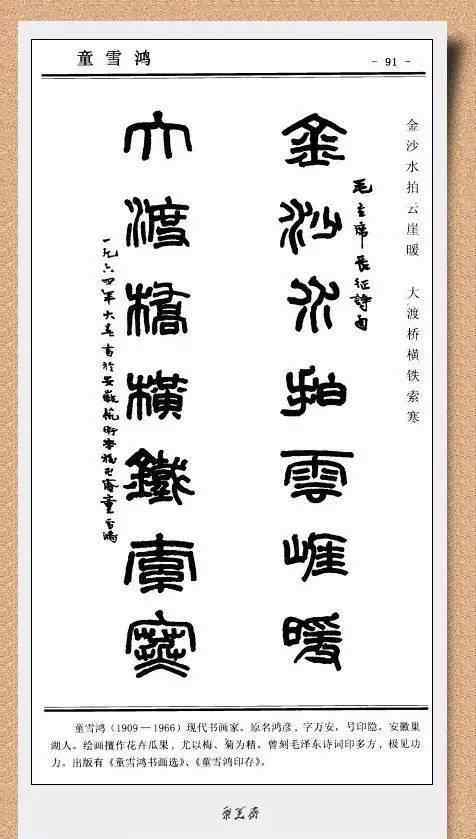 童雪鸿
- 91 -
金沙水拍云崖暖 大渡桥横铁索寒
金沙水拍雲崖暖
毛主席長征詩句
大渡橋橫鐵索寒
一九六四年大 書於安徽藝術學校 童雪鴻
童雪鸿(1909—1966)现代书画家。原名鸿彦,字万安,号印隐。安徽巢
湖人。绘画擅作花卉瓜果,尤以梅、菊为精。曾刻毛泽东诗词印多方,极见功
力。出版有《童雪鸿书画选》、《童雪鸿印存》。